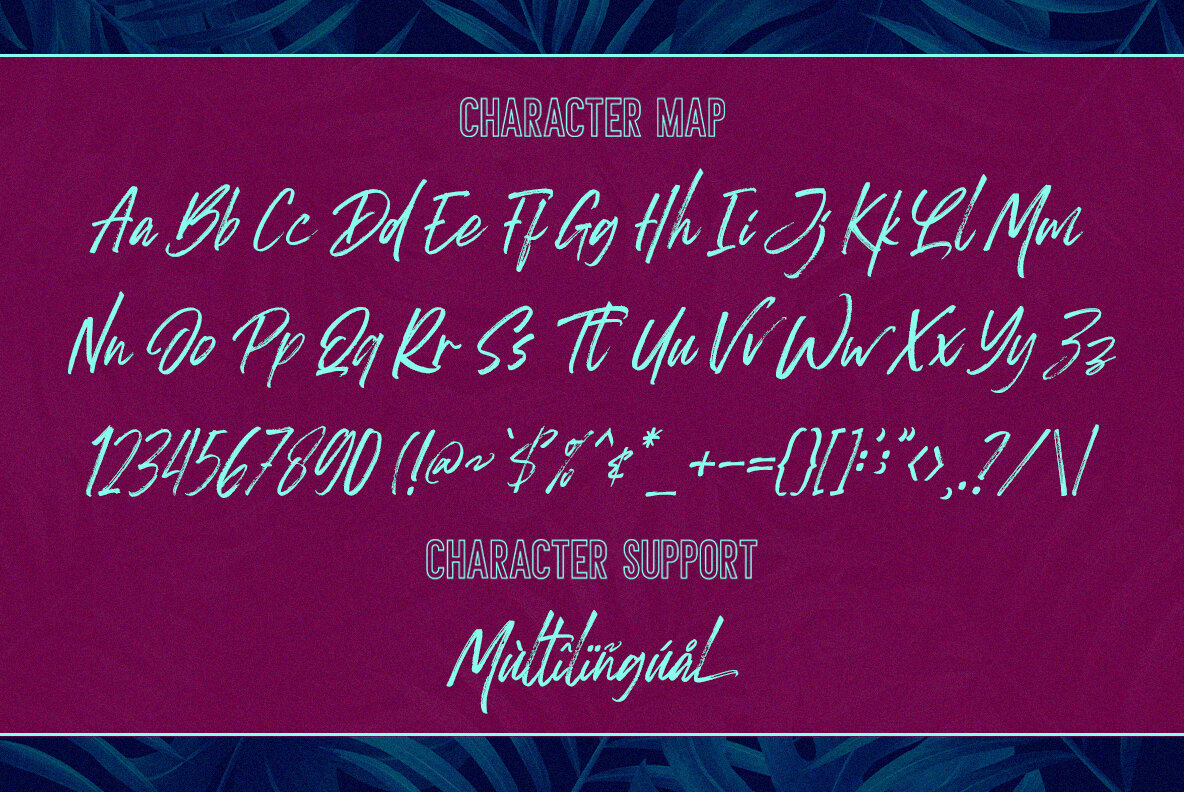 CHARACTER MAP
Aa Bb Cc Dd Ee Ff Gg Hh Ii Jj Kk Ll Mm
Nn Oo Pp Qq Rr Ss Tt Uu Vv Ww Xx Yy Zz
1234567890 (!@~`$%^&*_ +-={}[]:;'"<>,.?/\|
CHARACTER SUPPORT
Mùltîlïñgúål